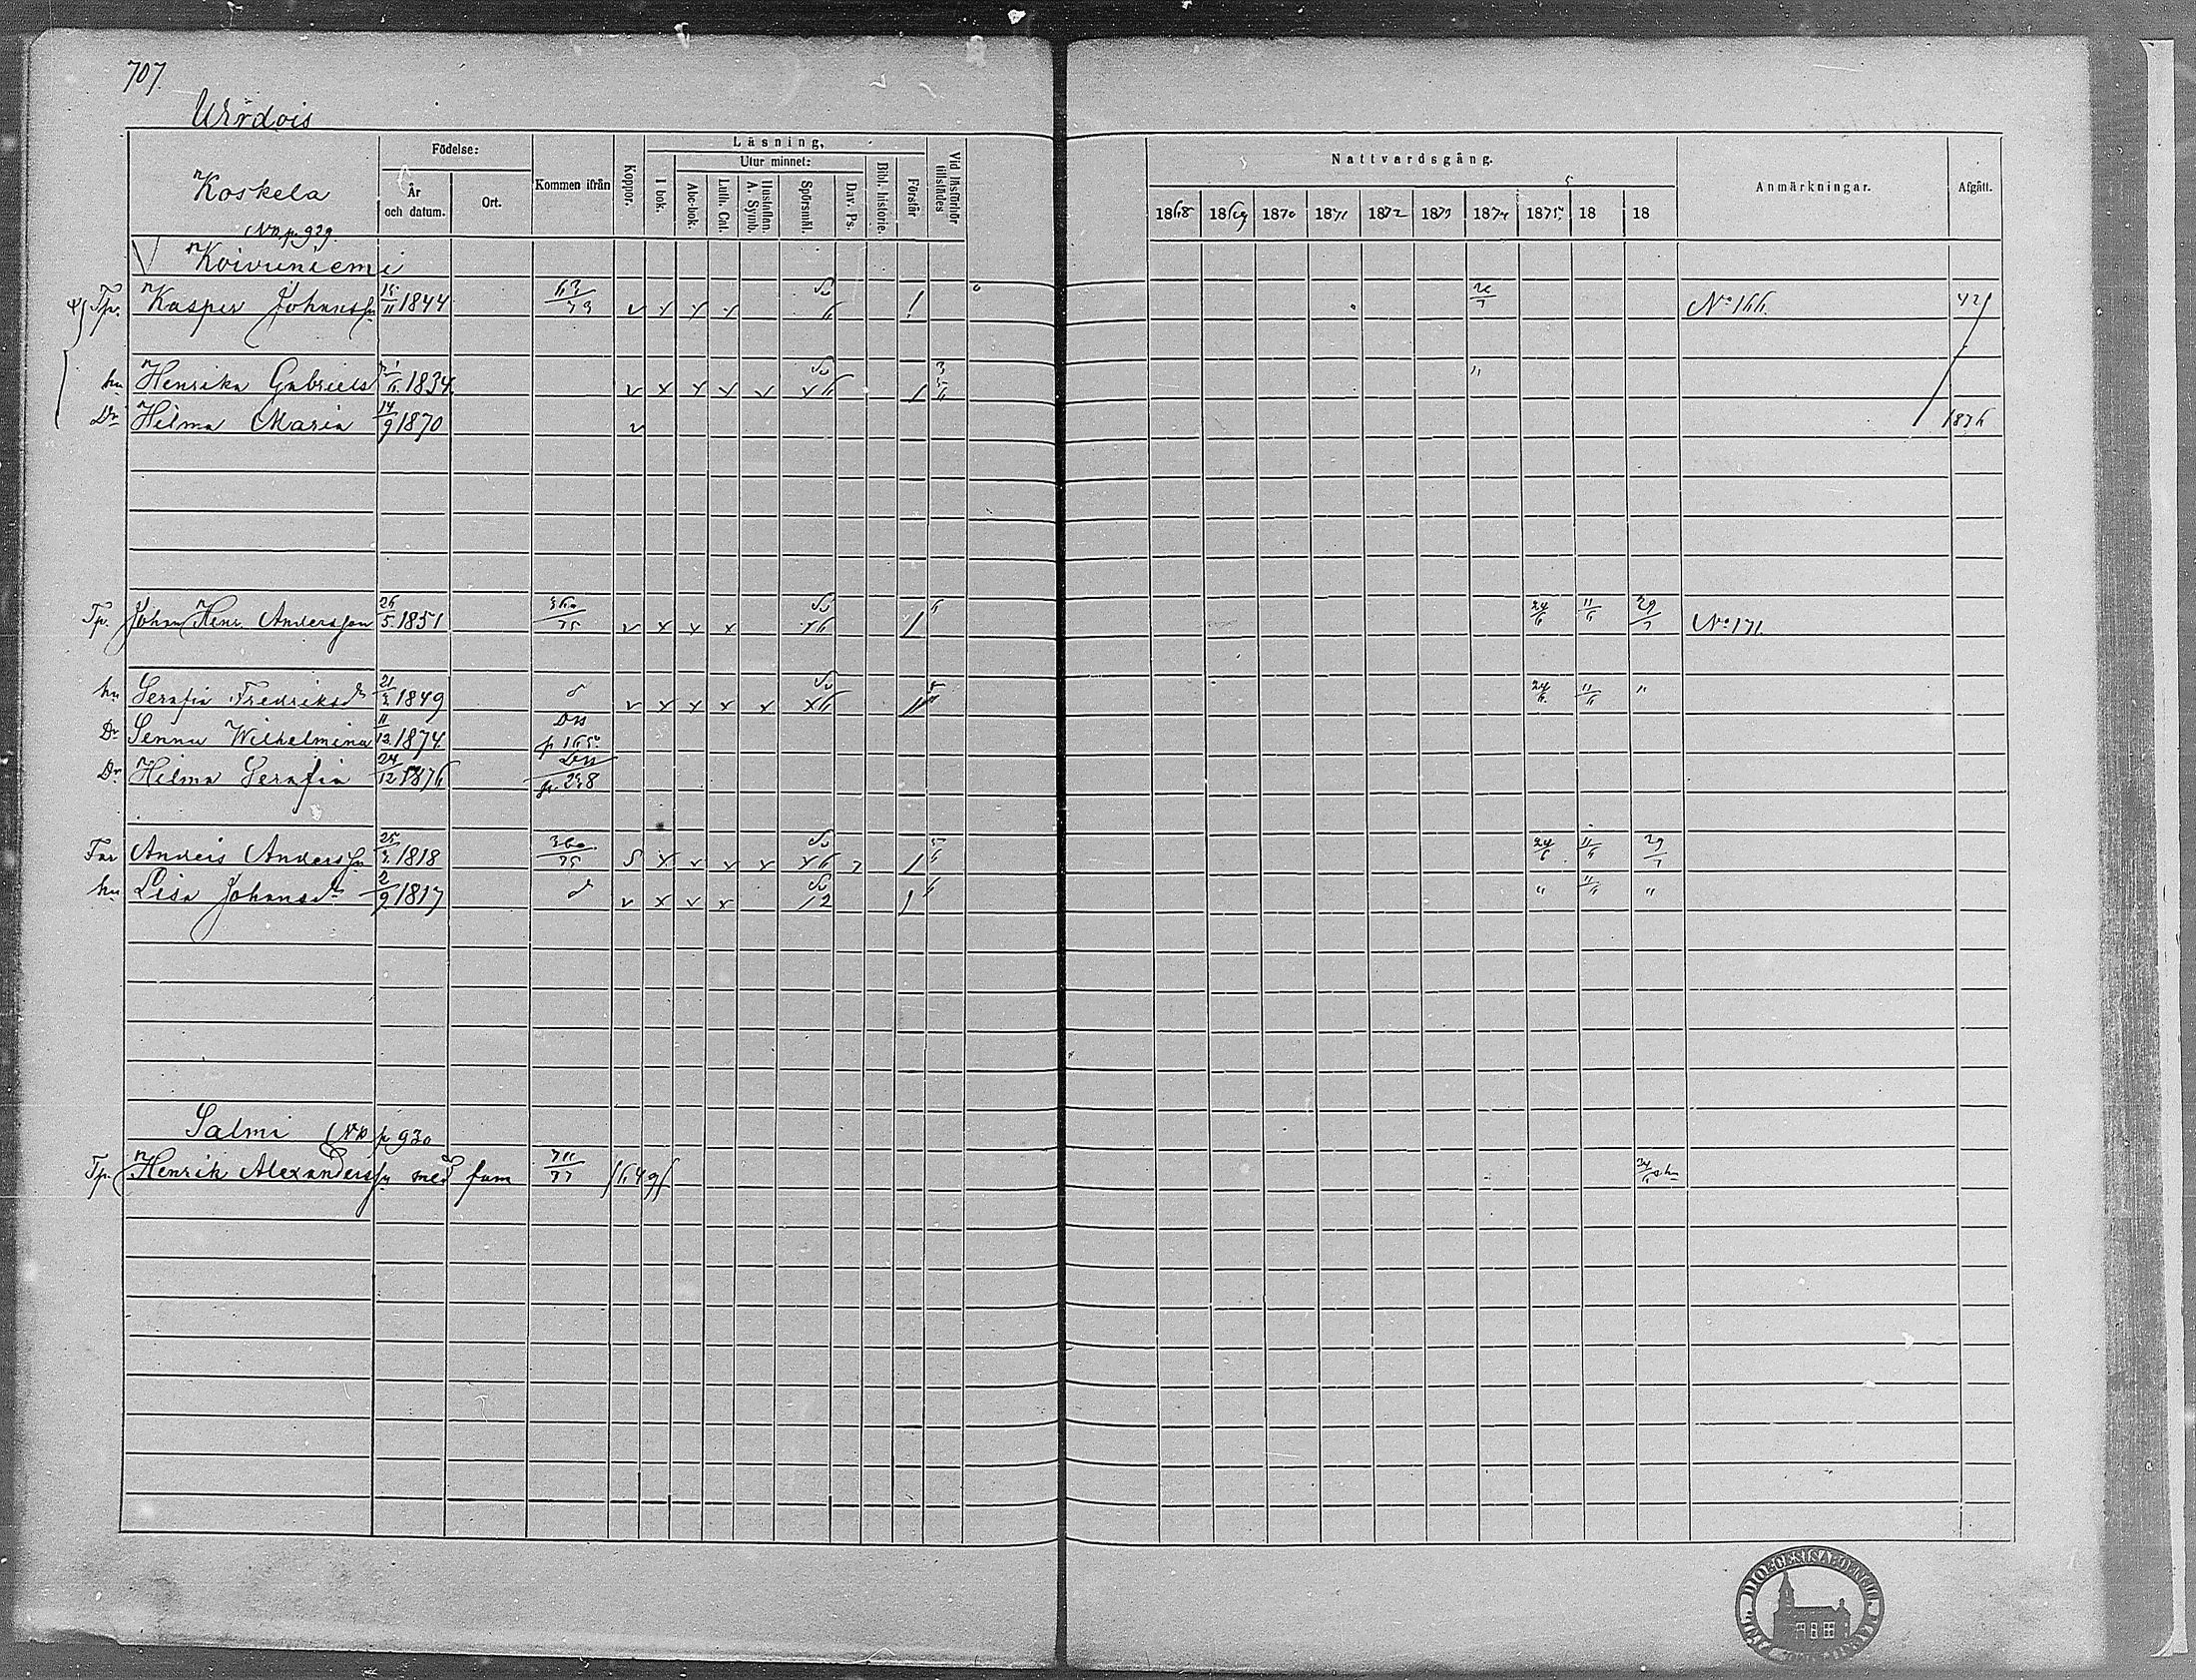 707.
Wirdois
Koskela
N.B. p. 929.
Födelse:
År och datum.
Ort.
Kommen ifrån
Koppor.
Läsning,
I bok.
Utur minnet:
Abc-bok.
Luth. Cat.
Hustaflan. A. Symb.
Spörsmål.
Dav. Ps.
Bibl. historie.
Förstår
Vid läsförhör tillstädes
Nattvardsgång.
1868 1869 1870 1871 1872 1873 1874 1875 18 18
Anmärkningar.
Afgått.
Koivuniemi
Tp. Kasper Johanss n 15/11 1844 63/73 v x x x 6 / 26/7 No 166. 421
hu Henrika Gabriels 1834 v x x x v x 6 / "
Dr Hilma Maria 14/9 1870 v 1876
Tp. Johan Henr. Andersson 26/5 1851 360/75 v x x x x6 / 24/6 11/6 29/7 No 171.
hu Serafia Fredriksd r 21/3 1849 d v x x x x x6 24/6 11/6 "
Dr Senna Wilhelmina 11/12 1874 p 165
Dr Hilma Serafia 24/12 1876 p. 238
Far Anders Anderss n 25/3 1818 360/75 S x v x x x6 / 24/6 11/6 29/7
hu Lisa Johansd r 2/9 1817 d v x x x 12 " 11/6 "
Salmi (N.B. p 930
Tp. Henrik Alexanderss n med fam 711/77 /649/